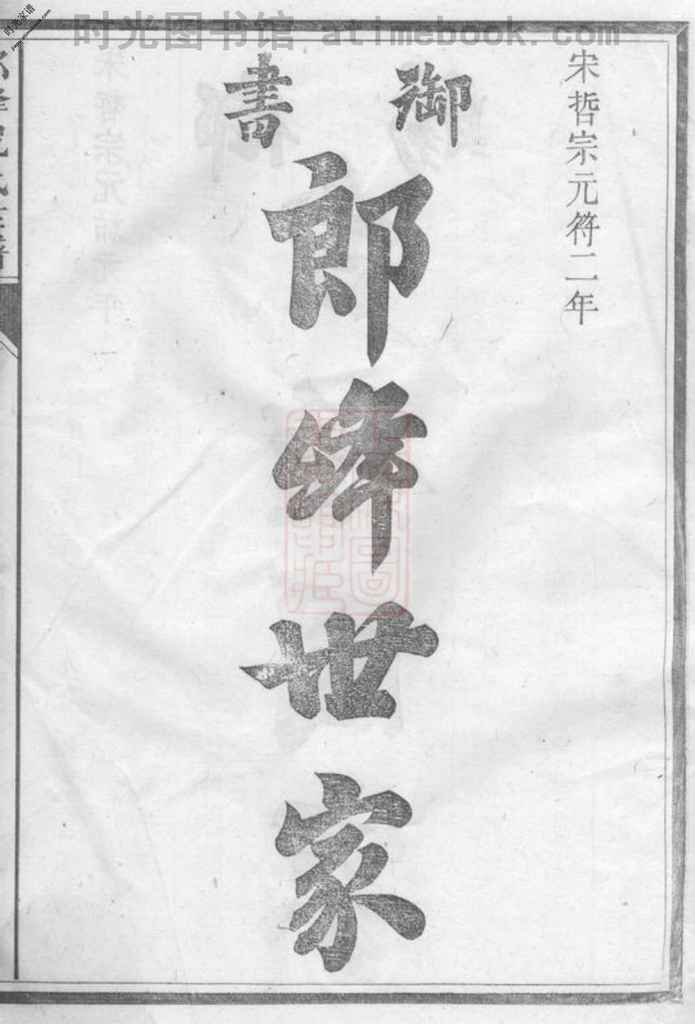 时光图书馆 atimebook.com
时光家谱
宋哲宗元符二年
御書
郎峰世家